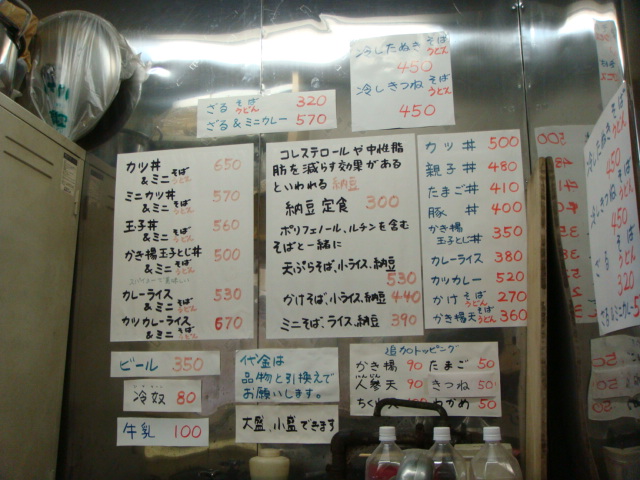 冷したぬき そば うどん
450
冷しきつね そば うどん
450
ざる そば うどん 320
ざる&ミニカレー 570
カツ丼 650
&ミニ そば うどん
ミニカツ丼 570
&ミニ そば うどん
玉子丼 560
&ミニ そば うどん
かき揚玉子とじ丼 500
&ミニ そば うどん
カレーライス 530
&ミニ そば うどん
カツカレーライス 670
&ミニ そば うどん
コレステロールや中性脂
肪を減らす効果がある
といわれる 納豆
納豆定食 300
ポリフェノール、ルチンを含む
そばと一緒に
天ぷらそば、小ライス、納豆
530
かけそば、小ライス、納豆 440
ミニそば、ライス、納豆 390
カツ丼 500
親子丼 480
たまご丼 410
豚丼 400
かき揚
玉子とじ丼 350
カレーライス 380
カツカレー 520
かけ そば うどん 270
かき揚天 そば うどん 360
ビール 350
冷奴 80
牛乳 100
代金は
品物と引換えで
お願いします。
大盛、小盛できます
追加トッピング
かき揚 90 たまご 50
人参天 90 きつね 50
わかめ 50
冷したぬき
450
冷しきつね
450
ざる
320
ざる&ミニカレー